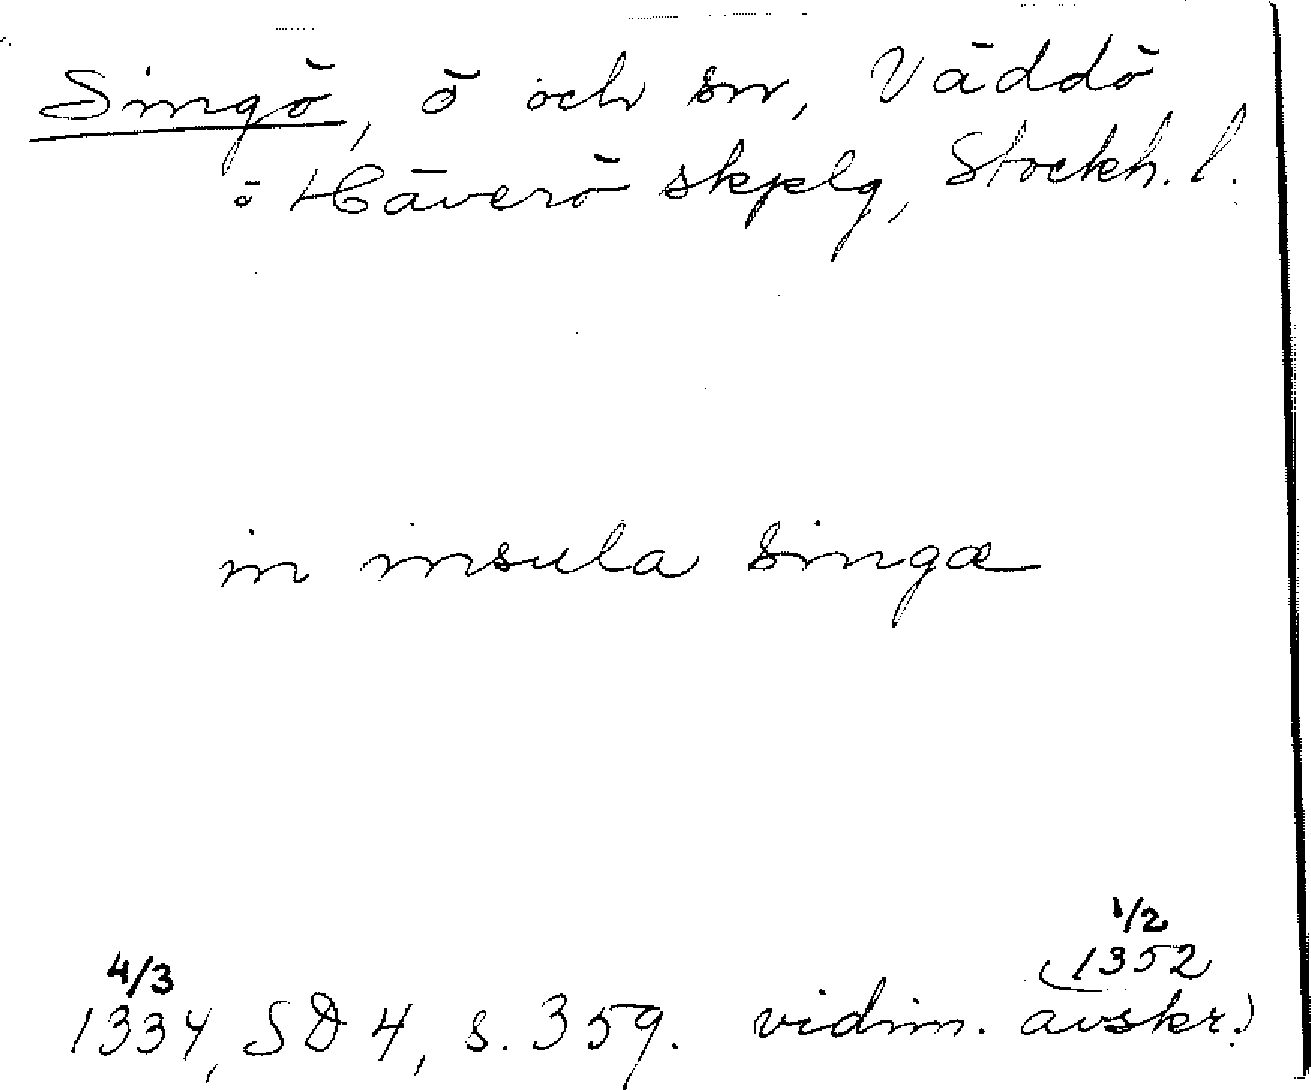 Singö, ö och sn, Väddö
o Häverö skplg, Stockh. l.
in insula singæ
4/3
1/2
1352
1334, SD 4, s. 359. vidim. avskr.)